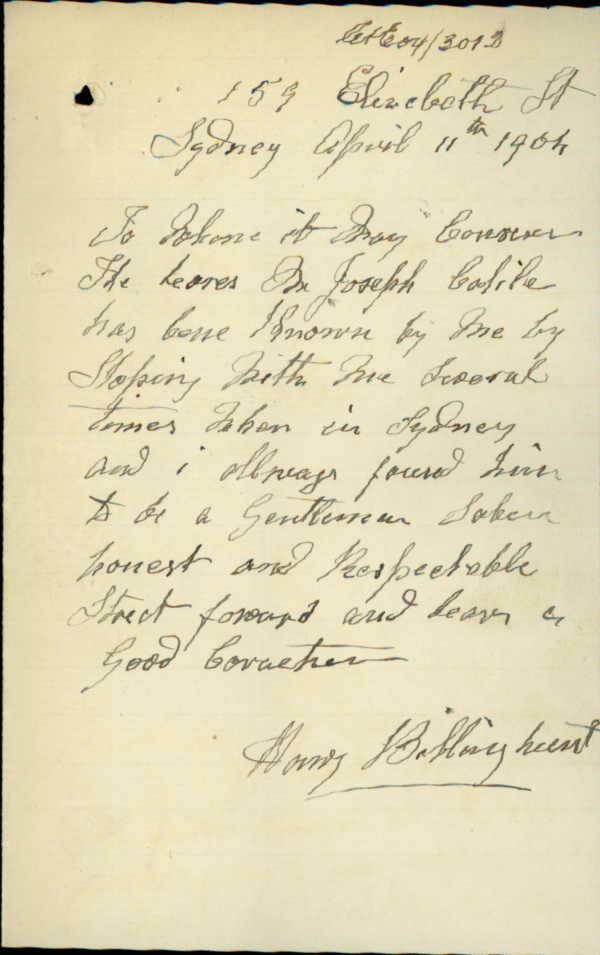 04/3012
159 Elizebeth St
Sydney April 11th 1904
To Whome it May Concern
The bearer Mr Joseph
has bene Known by Me by
Stoping With Me Several
times When in Sydney
and i allways found him
to be a Gentleman Sober
honest and Respectable
Strect forward and bears a
Good Coracther
Harry Billinghurst